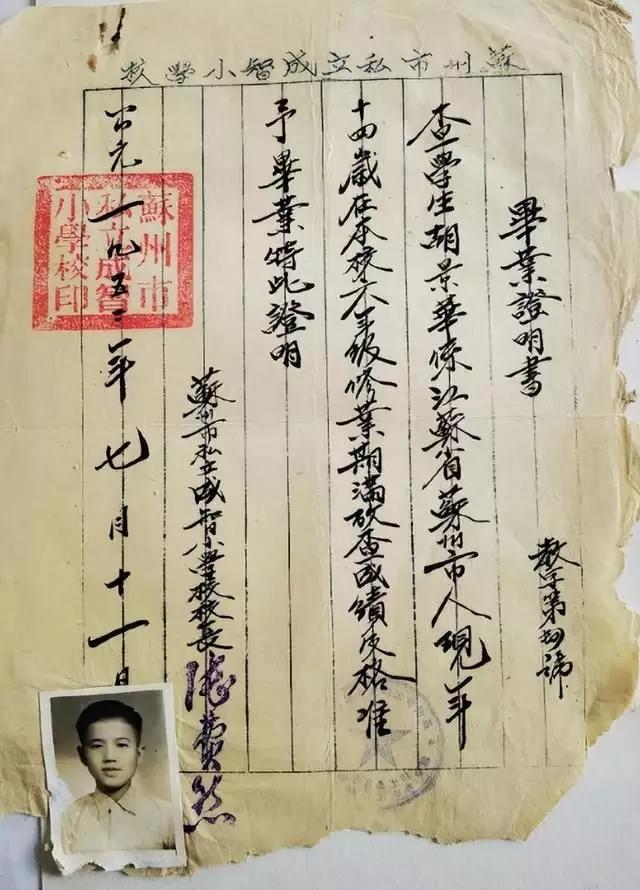 蘇州市私立成智小學校
畢業證明書
教字第號
查學生胡景華係江蘇省蘇州市人現年
十四歲在本校六年級修業期滿攷查成績及格准
予畢業特此證明
蘇州市私立成智小學校校長
公元一九五二年七月十一日
蘇州市
私立成智
小學校印